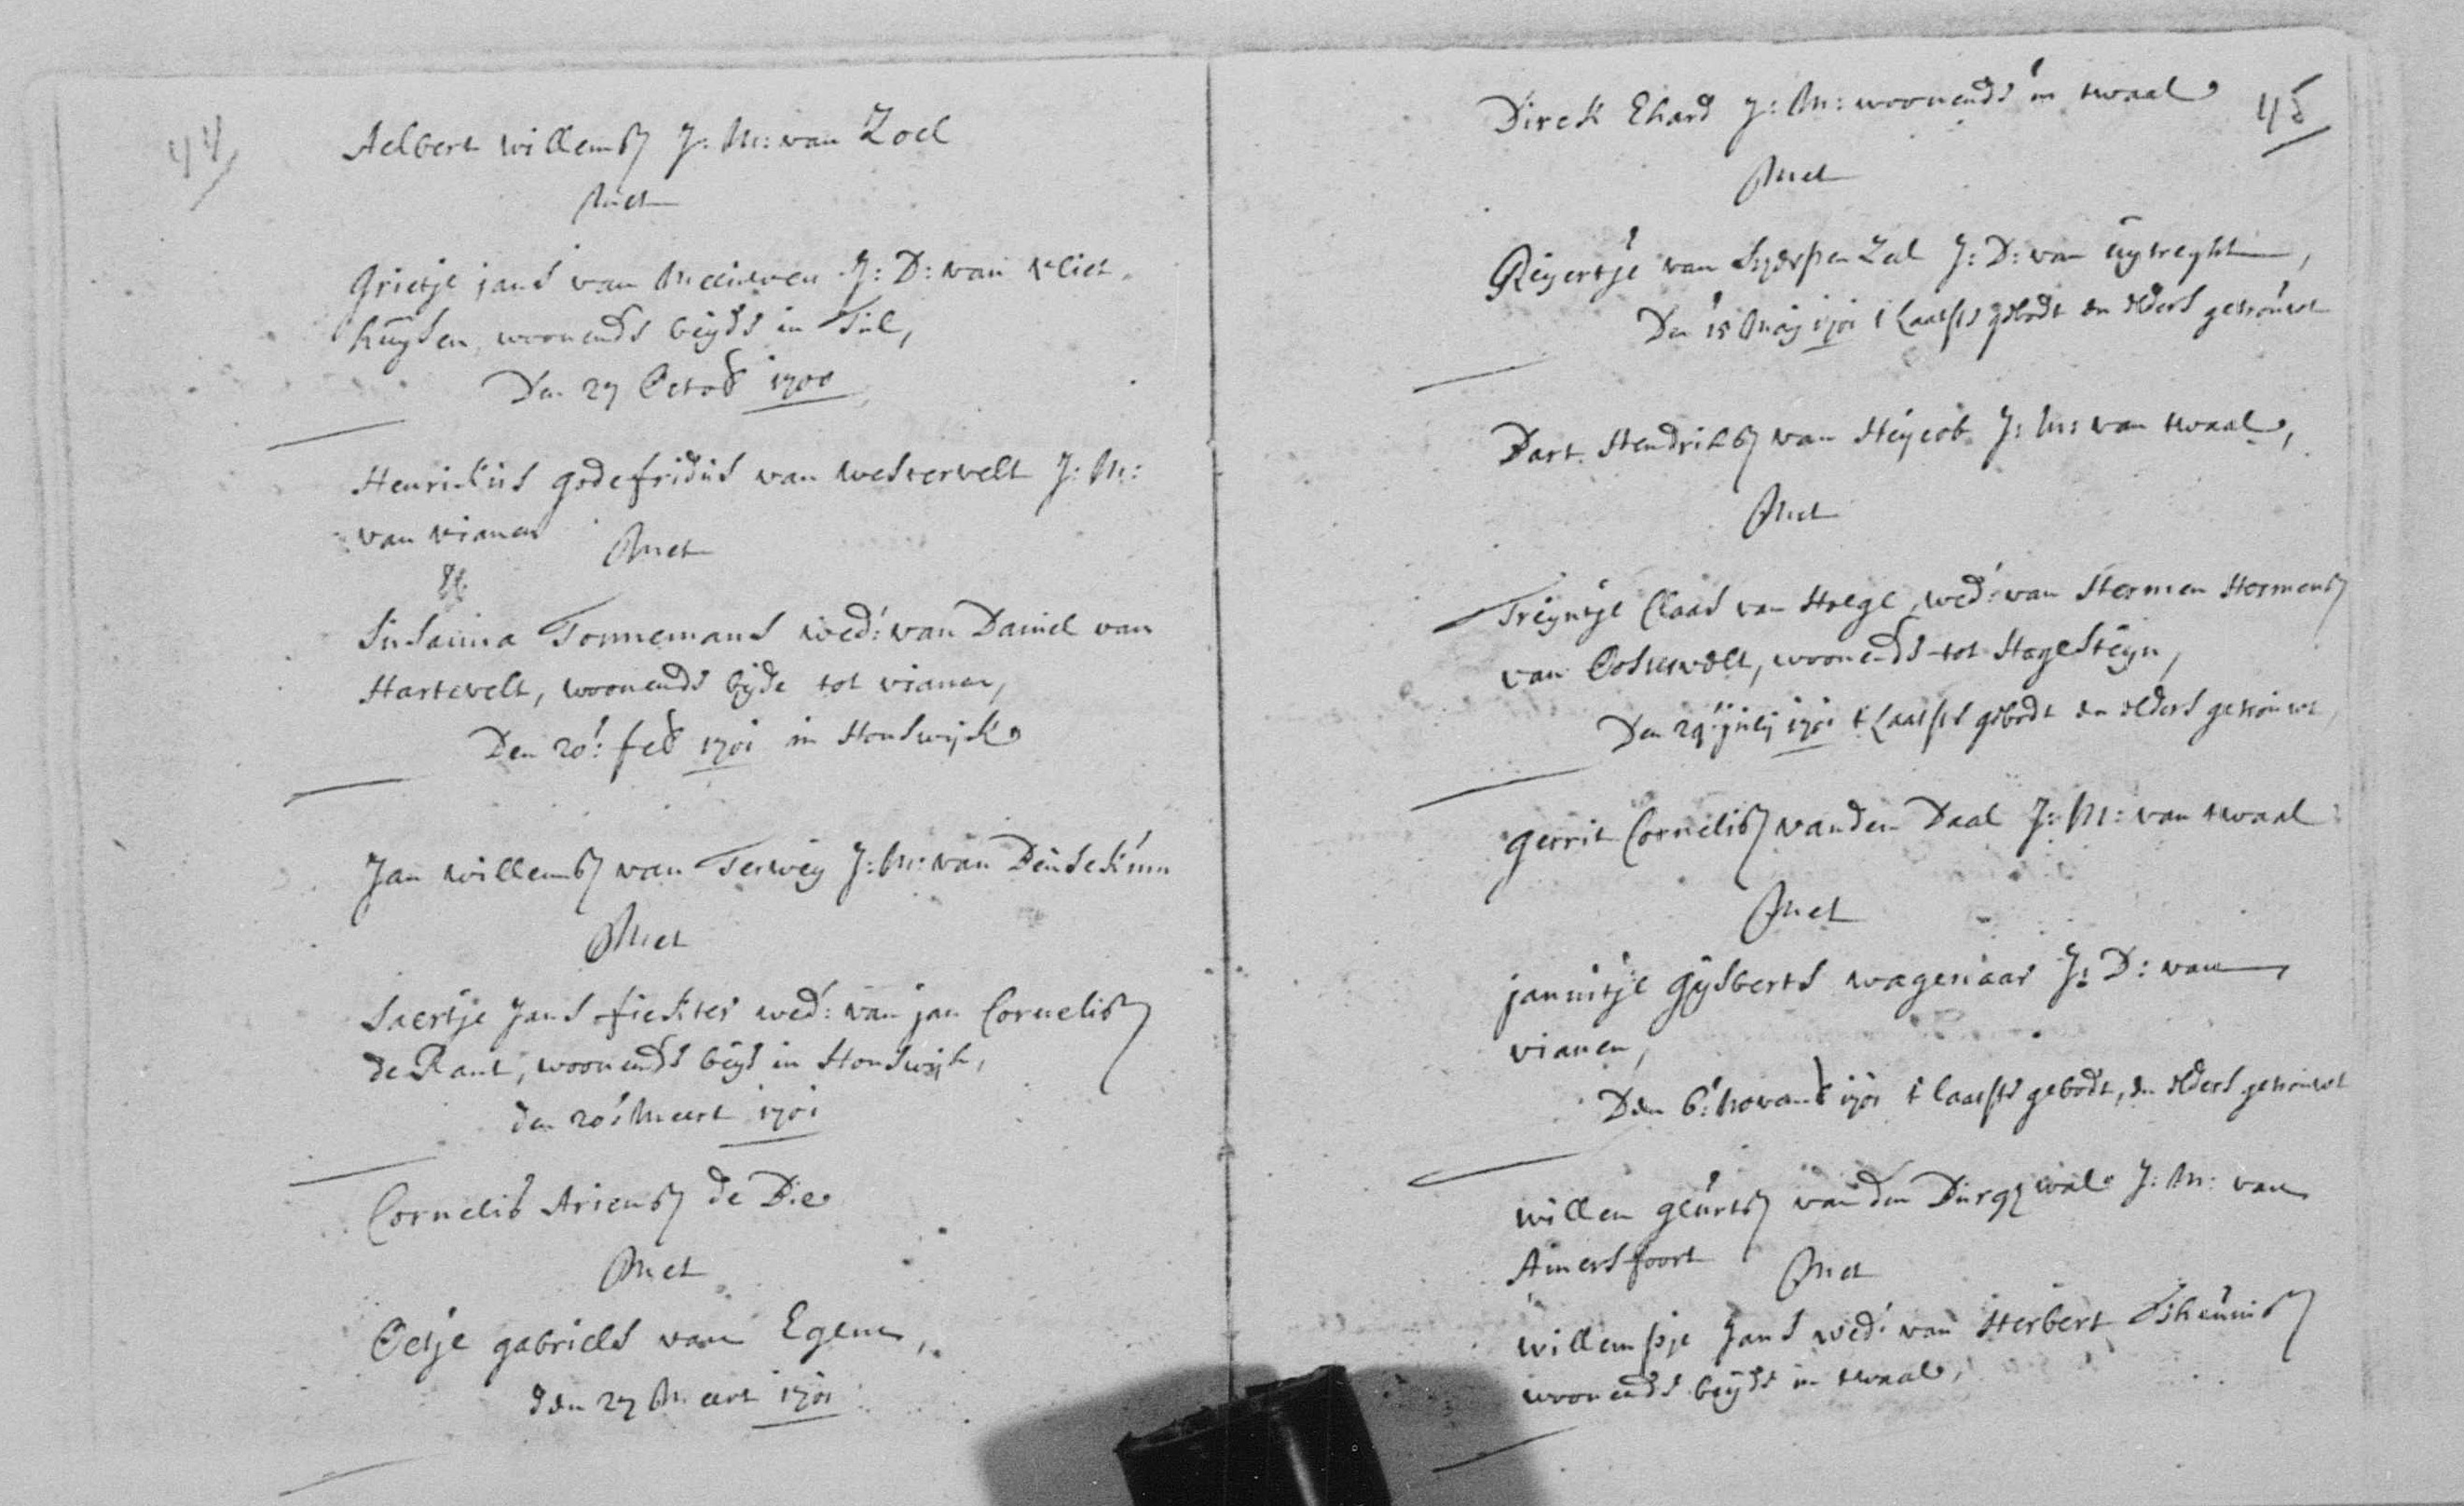 44
Aelbert willemsz J: M: van Zoel
Met
Grietje jans van Meeuwen J: D: van vliet
huysen, woonends beyds in Tul,
Den 27 Octob 1700
Henrickus godefridus van westervelt J: M:
van vianen
Met
Susanna Tonnemans wed: van Daniel van
Hartevelt, woonends byde tot vianen,
Den 20: feb 1701 in Honswijck
Jan willemsz van Terweij J: M: van
Met
Saertje Jans fickter wed: van jan Cornelisz
de Rant, woonends beyd in Honswijk,
den 20 Meert 1701
Cornelis Ariensz de Bie
Met
Oetje gabriels van Egem,
den 27 Meert 1701
45
Dirck Ehard J: M: woonends in twaal
Met
Reijertje van J: D: van uijtreght,
Den 15 Maij 1701 t Laatste gebodt en elders getrouwt
Bart Hendriksz van Heijcob J: M: van twaal,
Met
Treijntje Claas van Hoege, wed: van Hermen Hermensz
van Oosterwelt, woonends tot Hagesteijn,
Den 29 julij 1701 t Laatste gebodt en elders getrouwt
gerrit Cornelisz vanden Daal J: M: van twaal
Met
jannitje Gijsberts wagenaar J: D: van
vianen,
Den 6: Novemb 1701 t laatste gebodt, en elders getrouwt
willem geurtsz van den Burgwal J: M: van
Amersfoort
Met
willempje Jans wed: van Herbert Theunisz
woonends beyds in twaal,